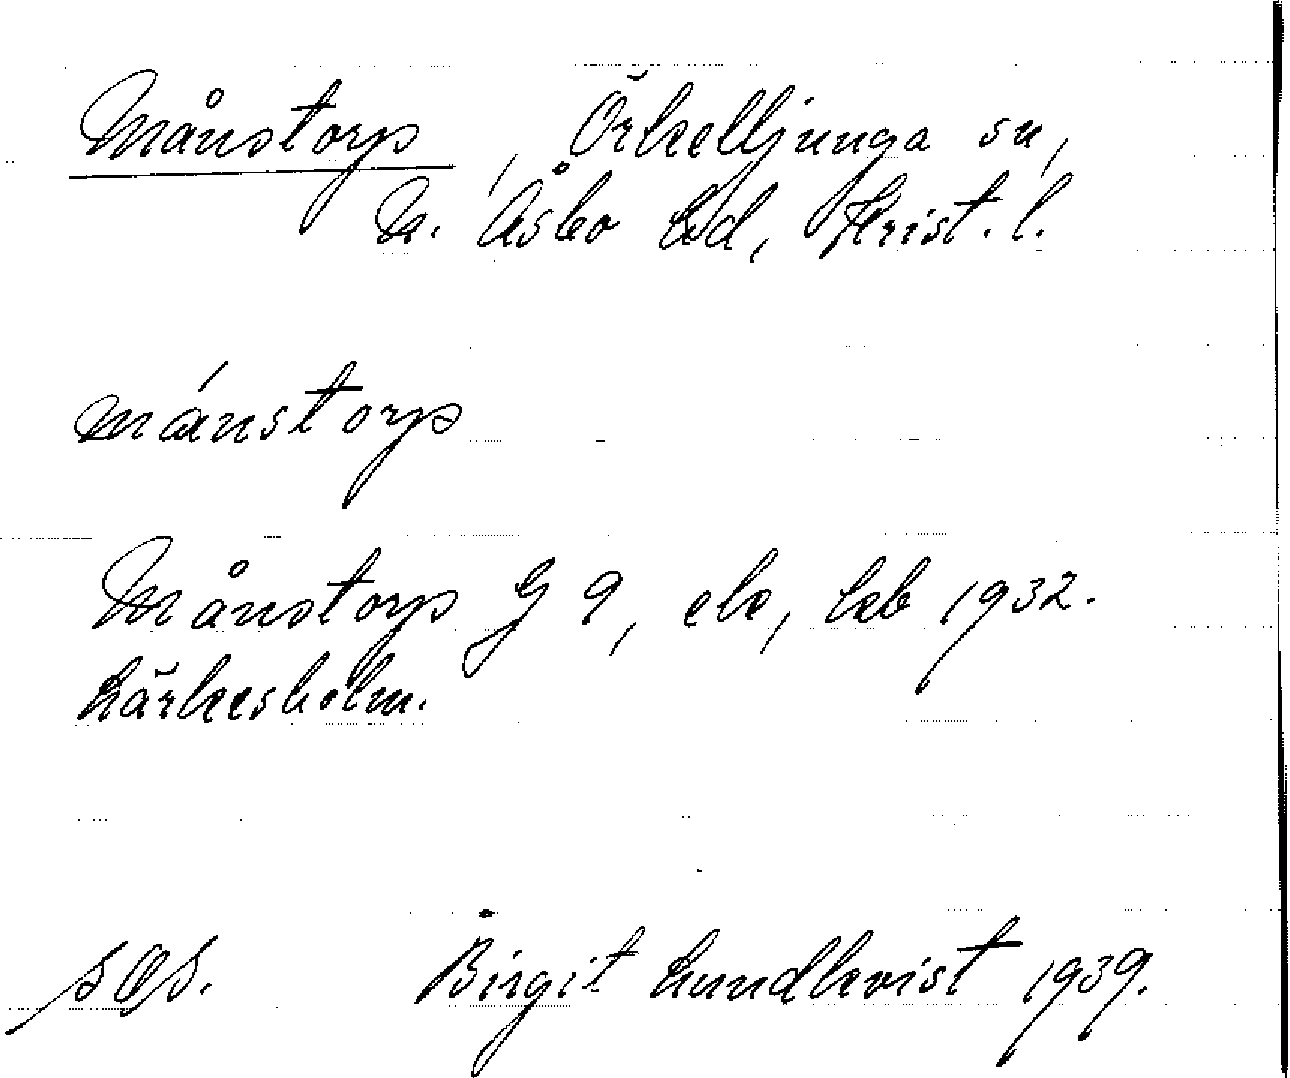 Månstorp, Örkelljunga sn,
N. Åsbo hd, Krist. l.
mánstorp
Månstorp G 9, ek, kb 1932.
Lärkesholm.
Birgit Lundkvist 1939.